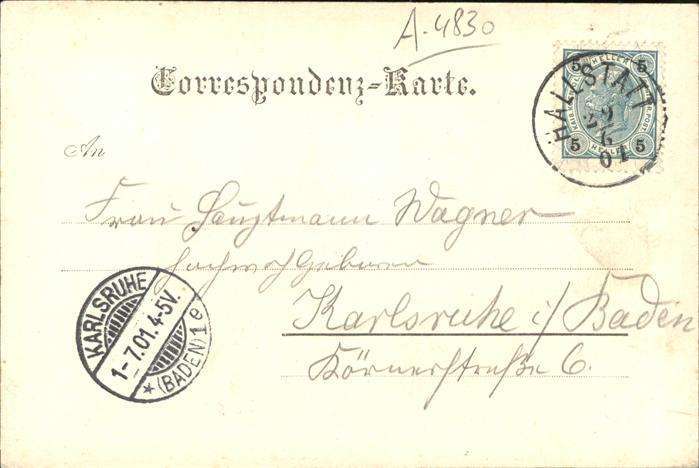 A-4830
Correspondenz-Karte.
5 HELLER 5
5 HELLER 5
HALLSTATT
An
Frau Hauptmann Wagner
Hochwohlgeboren
Karlsruhe i/ Baden
Körnerstraße 6.
KARLSRUHE
1-7.01.4-5V.
* (BADEN) 1 e